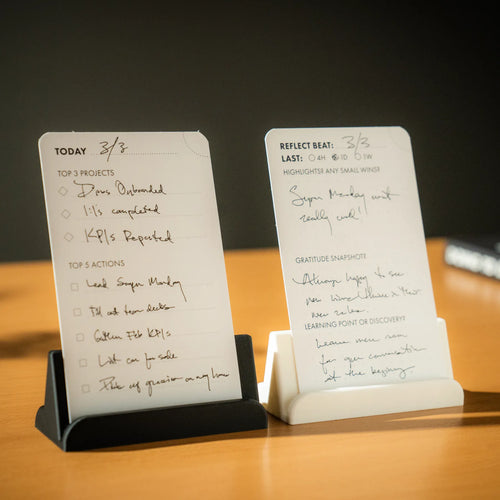 TODAY 3/3
TOP 3 PROJECTS
Onboarded
1:1's completed
KPI's Reported
TOP 5 ACTIONS
Lead Super Monday
Fill out team
Gather Feb KPI's
List car for sale
question on my home
REFLECT BEAT: 3/3
LAST: 4H 1D 1W
HIGHLIGHTS? ANY SMALL WINS?
Super Monday went
really well!
GRATITUDE SNAPSHOT?
Always happy to see
new
new
LEARNING POINT OR DISCOVERY?
Leave more room
for open conversation
at the beginning.